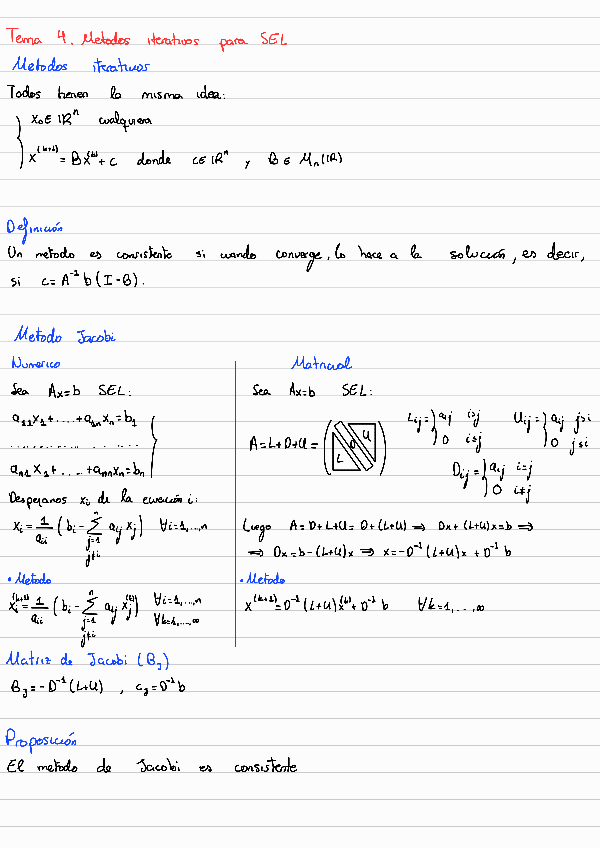 Tema 4. Metodos iterativos para SEL
Metodos iterativos
Todos tienen la misma idea:
x₀ ∈ ℝⁿ cualquiera
x⁽ᵏ⁺¹⁾ = Bx⁽ᵏ⁾ + c donde c ∈ ℝⁿ y B ∈ Mₙ(ℝ)
Definición
Un metodo es consistente si cuando converge, lo hace a la solución, es decir,
si c = A⁻¹ b (I - B).
Metodo Jacobi
Numerico
Sea Ax=b SEL:
a₁₁x₁ + .... + a₁ₙxₙ = b₁
.......................
aₙ₁x₁ + .... + aₙₙxₙ = bₙ
Despejamos xᵢ de la ecuación i:
xᵢ = 1/aᵢᵢ (bᵢ - Σ_{j=1, j≠i}^{n} aᵢⱼ xⱼ) ∀i=1,...,n
• Metodo
xᵢ⁽ᵏ⁺¹⁾ = 1/aᵢᵢ (bᵢ - Σ_{j=1, j≠i}^{n} aᵢⱼ xⱼ⁽ᵏ⁾) ∀i=1,...,n ∀k=1,...,∞
Matricial
Sea Ax=b SEL:
A = L+D+U = ( L D U )
Lᵢⱼ = { aᵢⱼ i>j
0 i≤j
Uᵢⱼ = { aᵢⱼ j>i
0 j≤i
Dᵢⱼ = { aᵢⱼ i=j
0 i≠j
Luego A = D+L+U = D+(L+U) ⇒ Dx + (L+U)x = b ⇒
⇒ Dx = b-(L+U)x ⇒ x = -D⁻¹(L+U)x + D⁻¹b
• Metodo
x⁽ᵏ⁺¹⁾ = D⁻¹(L+U)x⁽ᵏ⁾ + D⁻¹b ∀k=1,...,∞
Matriz de Jacobi (B_J)
B_J = -D⁻¹(L+U) , c_J = D⁻¹b
Proposición
El metodo de Jacobi es consistente